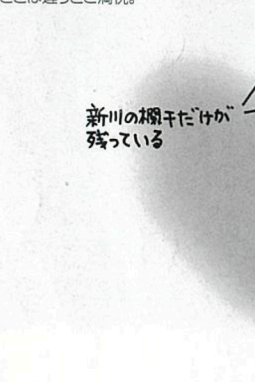 新川の欄干だけが
残っている